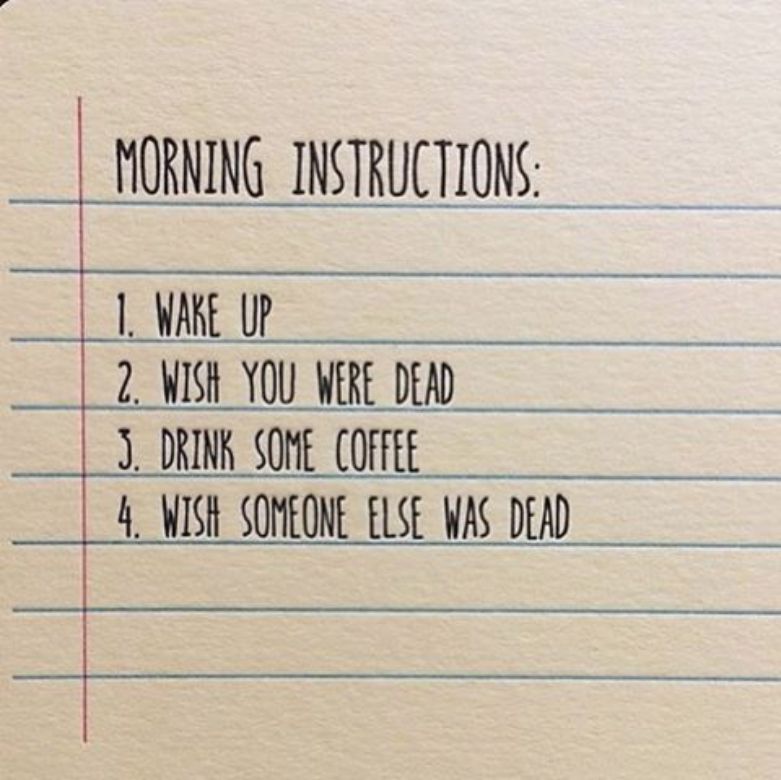 MORNING INSTRUCTIONS:
1. WAKE UP
2. WISH YOU WERE DEAD
3. DRINK SOME COFFEE
4. WISH SOMEONE ELSE WAS DEAD